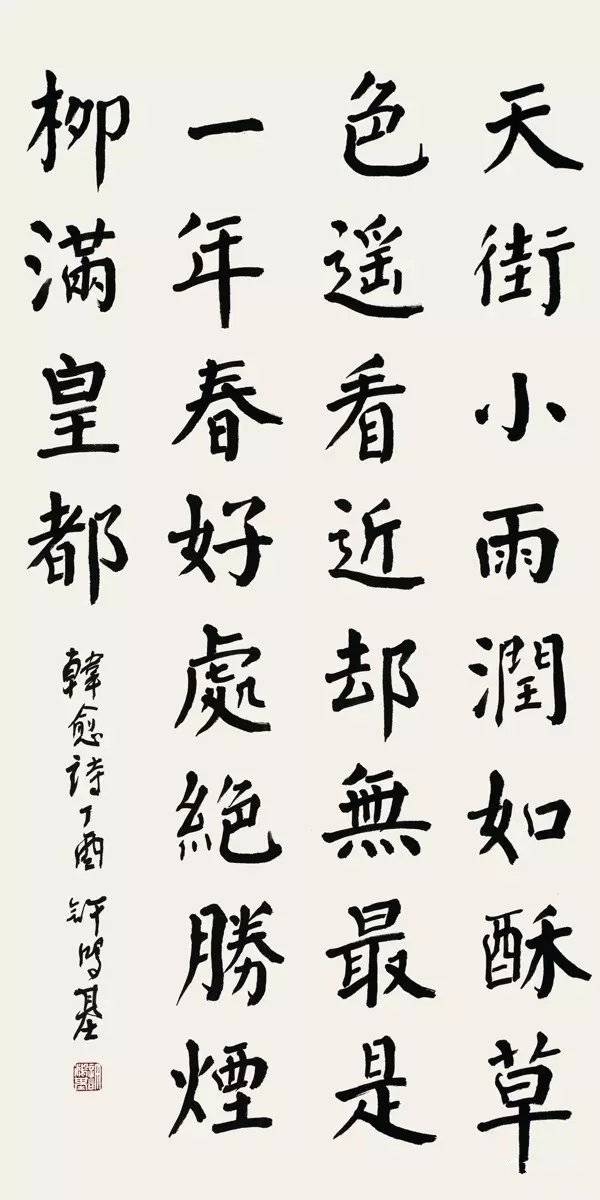 天街小雨潤如酥草
色遥看近却無最是
一年春好處絕勝煙
柳滿皇都
韓愈詩丁酉 許鴻基